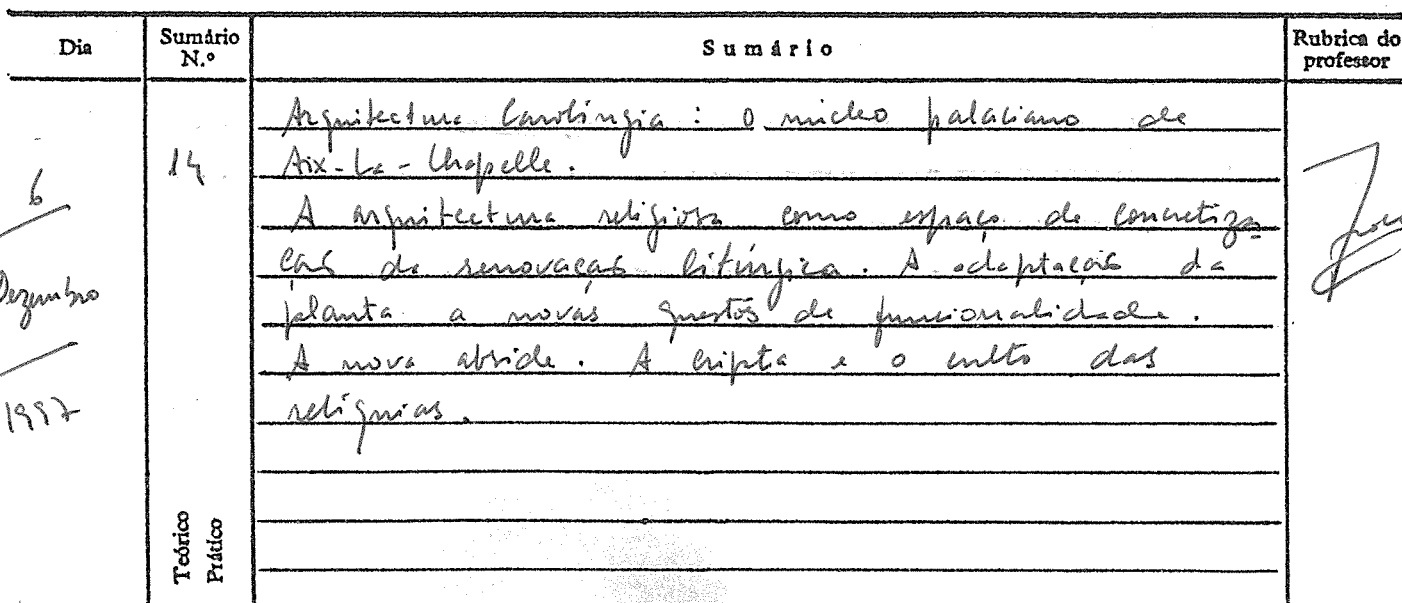 Dia
Sumário N.º
Sumário
Rubrica do professor
6
Dezembro
1997
14
Arquitectura Carolíngia : O núcleo palaciano de
Aix-La-Chapelle.
A arquitectura religiosa como espaço de concretiza-
ção da renovação litúrgica. A adaptação da
planta a novas questões de funcionalidade.
A nova abside. A cripta e o culto das
relíquias.
Teórico
Prático